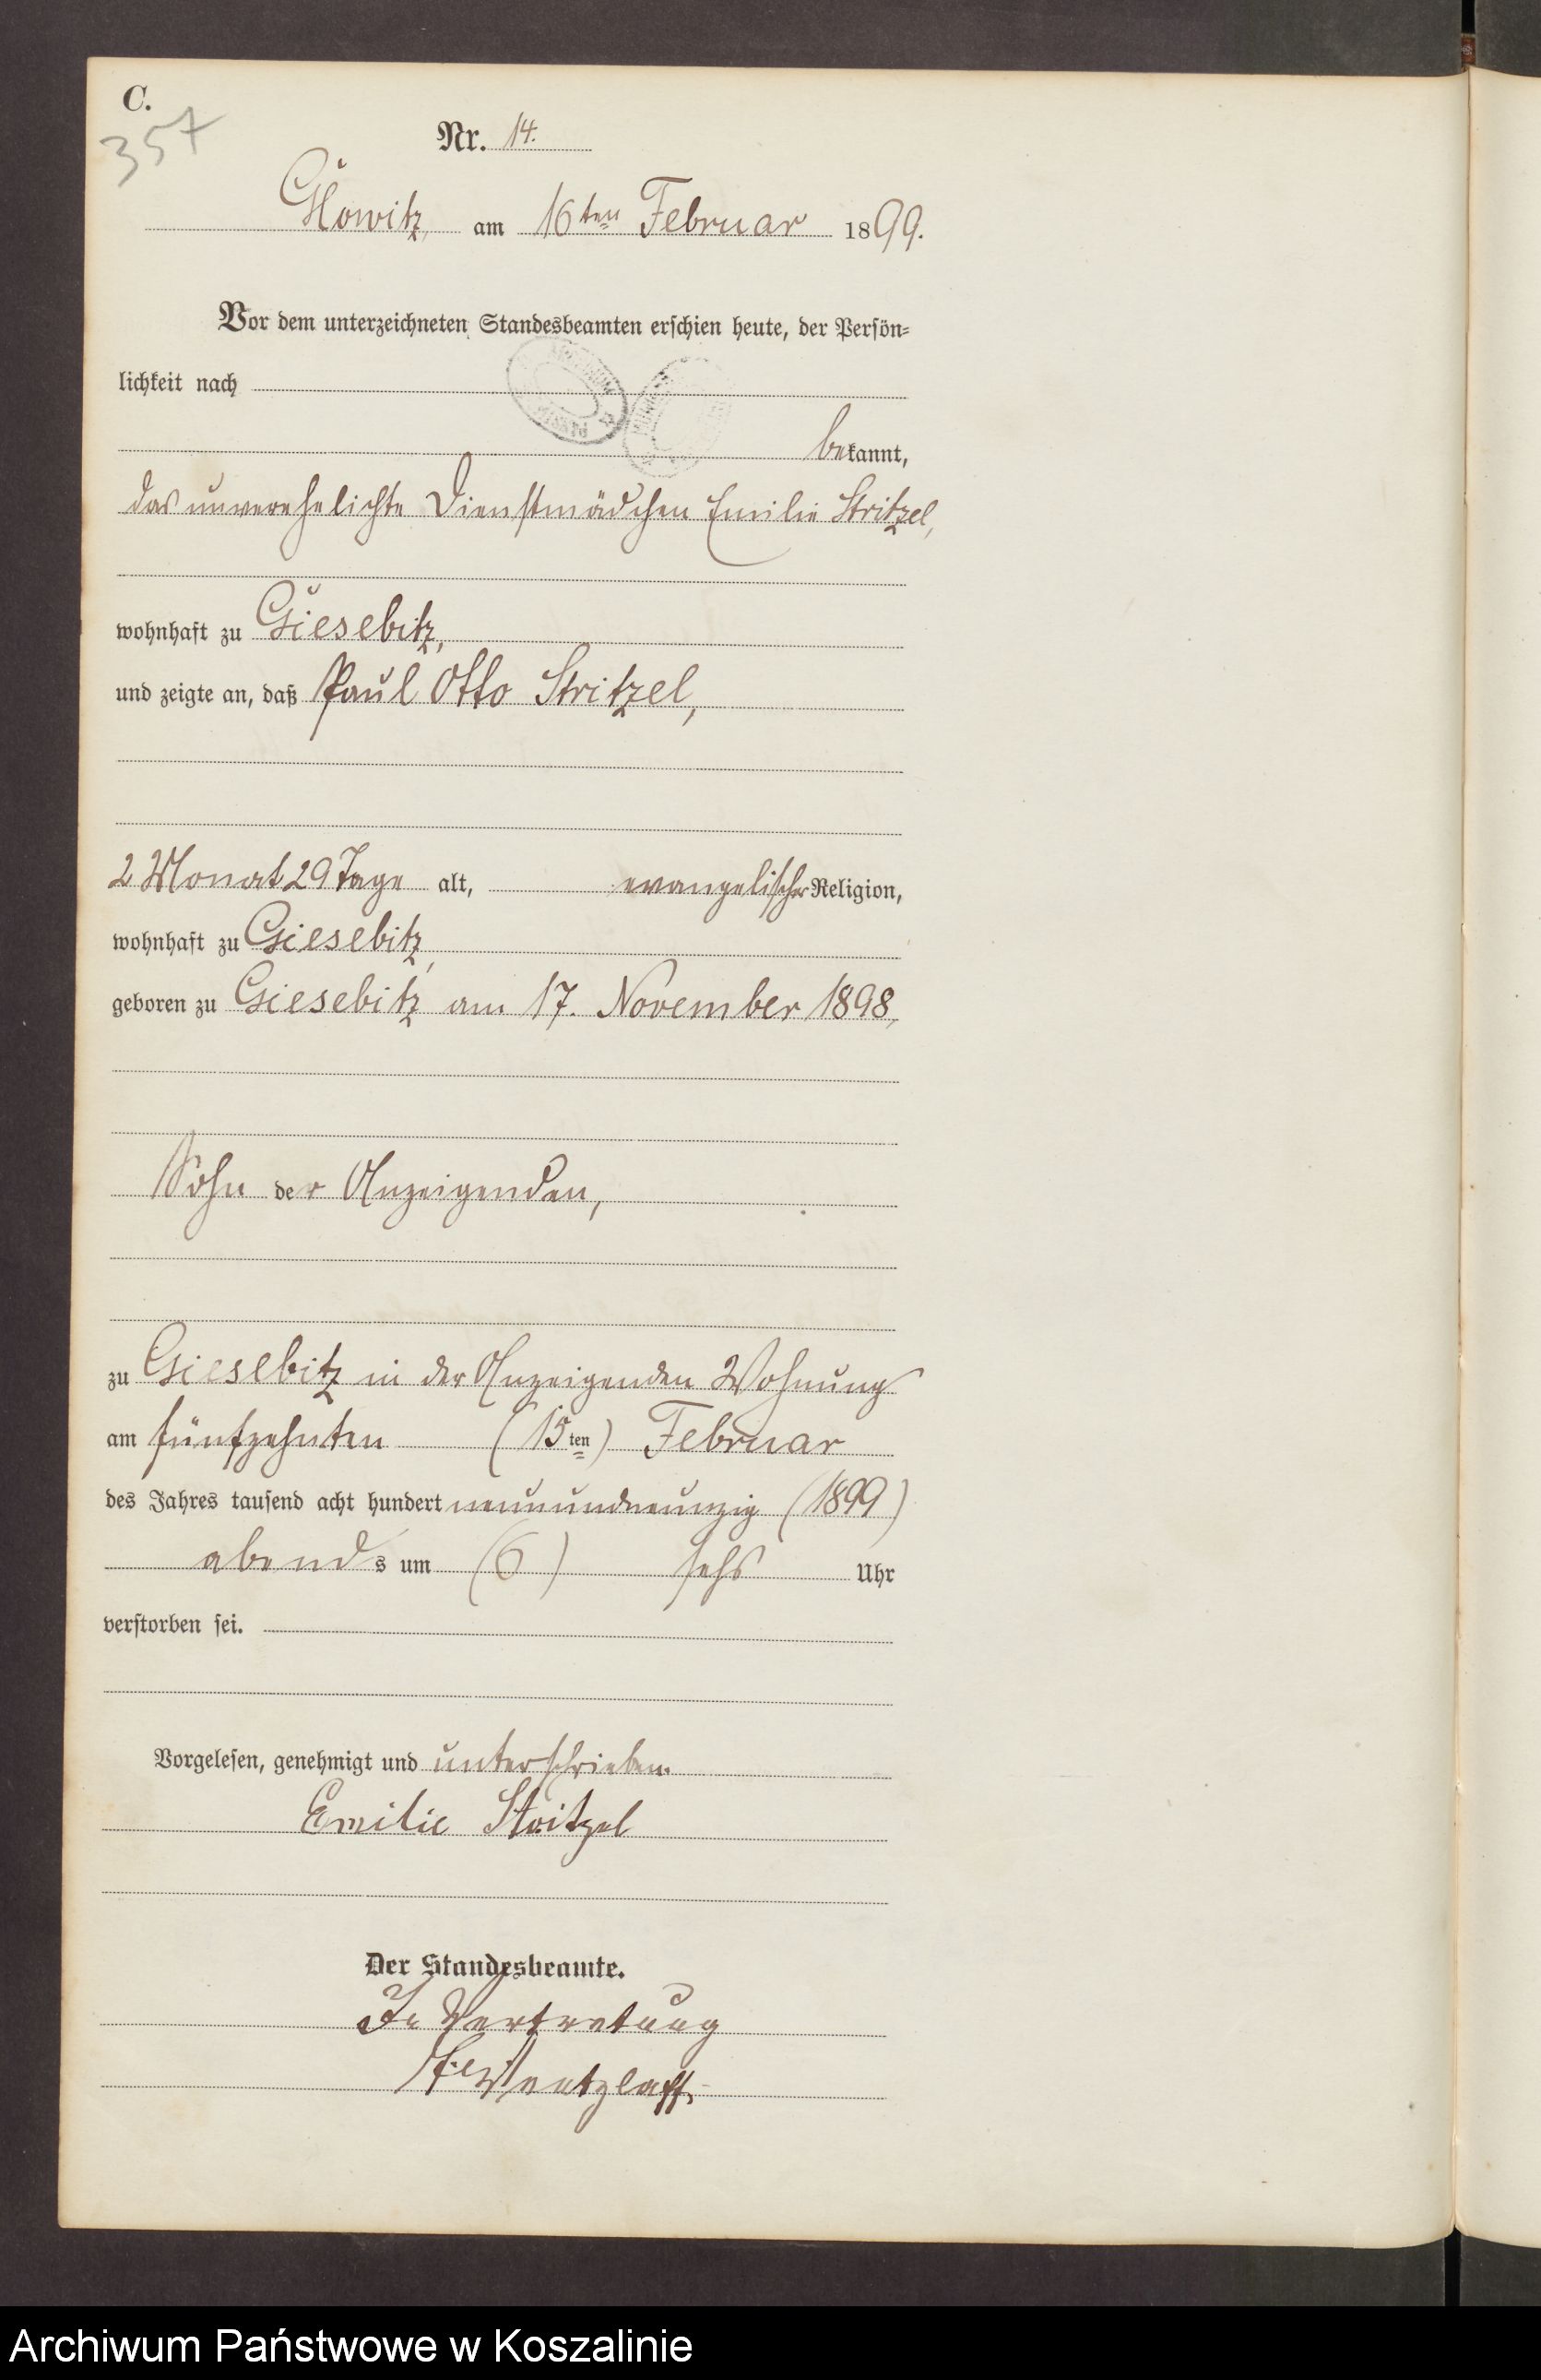 C.
357
Nr. 14.
Glowitz, am 16ten Februar 1899.
Vor dem unterzeichneten Standesbeamten erschien heute, der Persön=
lichkeit nach
bekannt,
das unverehelichte Dienstmädchen Emilie Stritzel,
wohnhaft zu Giesebitz,
und zeigte an, daß Paul Otto Stritzel,
2 Monat 29 Tage alt, evangelischer Religion,
wohnhaft zu Giesebitz,
geboren zu Giesebitz am 17. November 1898,
Sohn der Anzeigenden,
zu Giesebitz in der Anzeigenden Wohnung
am fünfzehnten (15ten) Februar
des Jahres tausend acht hundert neunundneunzig (1899)
abends um (6) sechs Uhr
verstorben sei.
Vorgelesen, genehmigt und unterschrieben.
Emilie Stritzel
Der Standesbeamte.
In Vertretung
Wentzlaff.
Archiwum Państwowe w Koszalinie